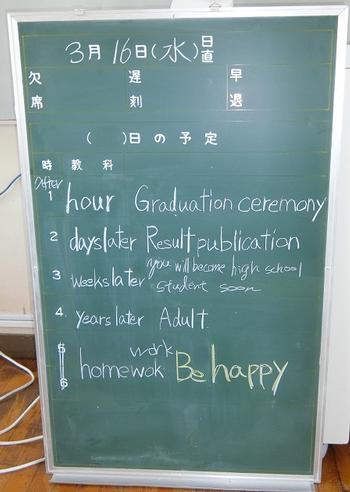 3月16日(水) 日直
欠席 遅刻 早退
( )日の予定
時 教科
After
1 hour Graduation ceremony
2 dayslater Result publication
3 weekslater you will become high school
student soon
4 yearslater Adult
work
5 6 homewok Be happy